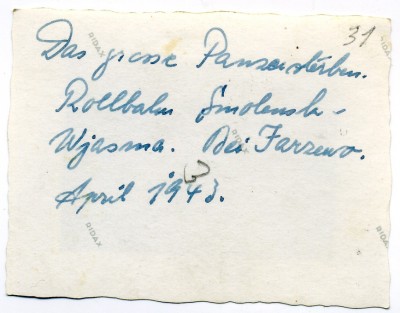 31
Das grosse Panzersterben.
Rollbahn Smolensk -
Wjasma. Bei Jarzewo.
April 1943.
RIDAX
RIDAX
RIDAX
RIDAX